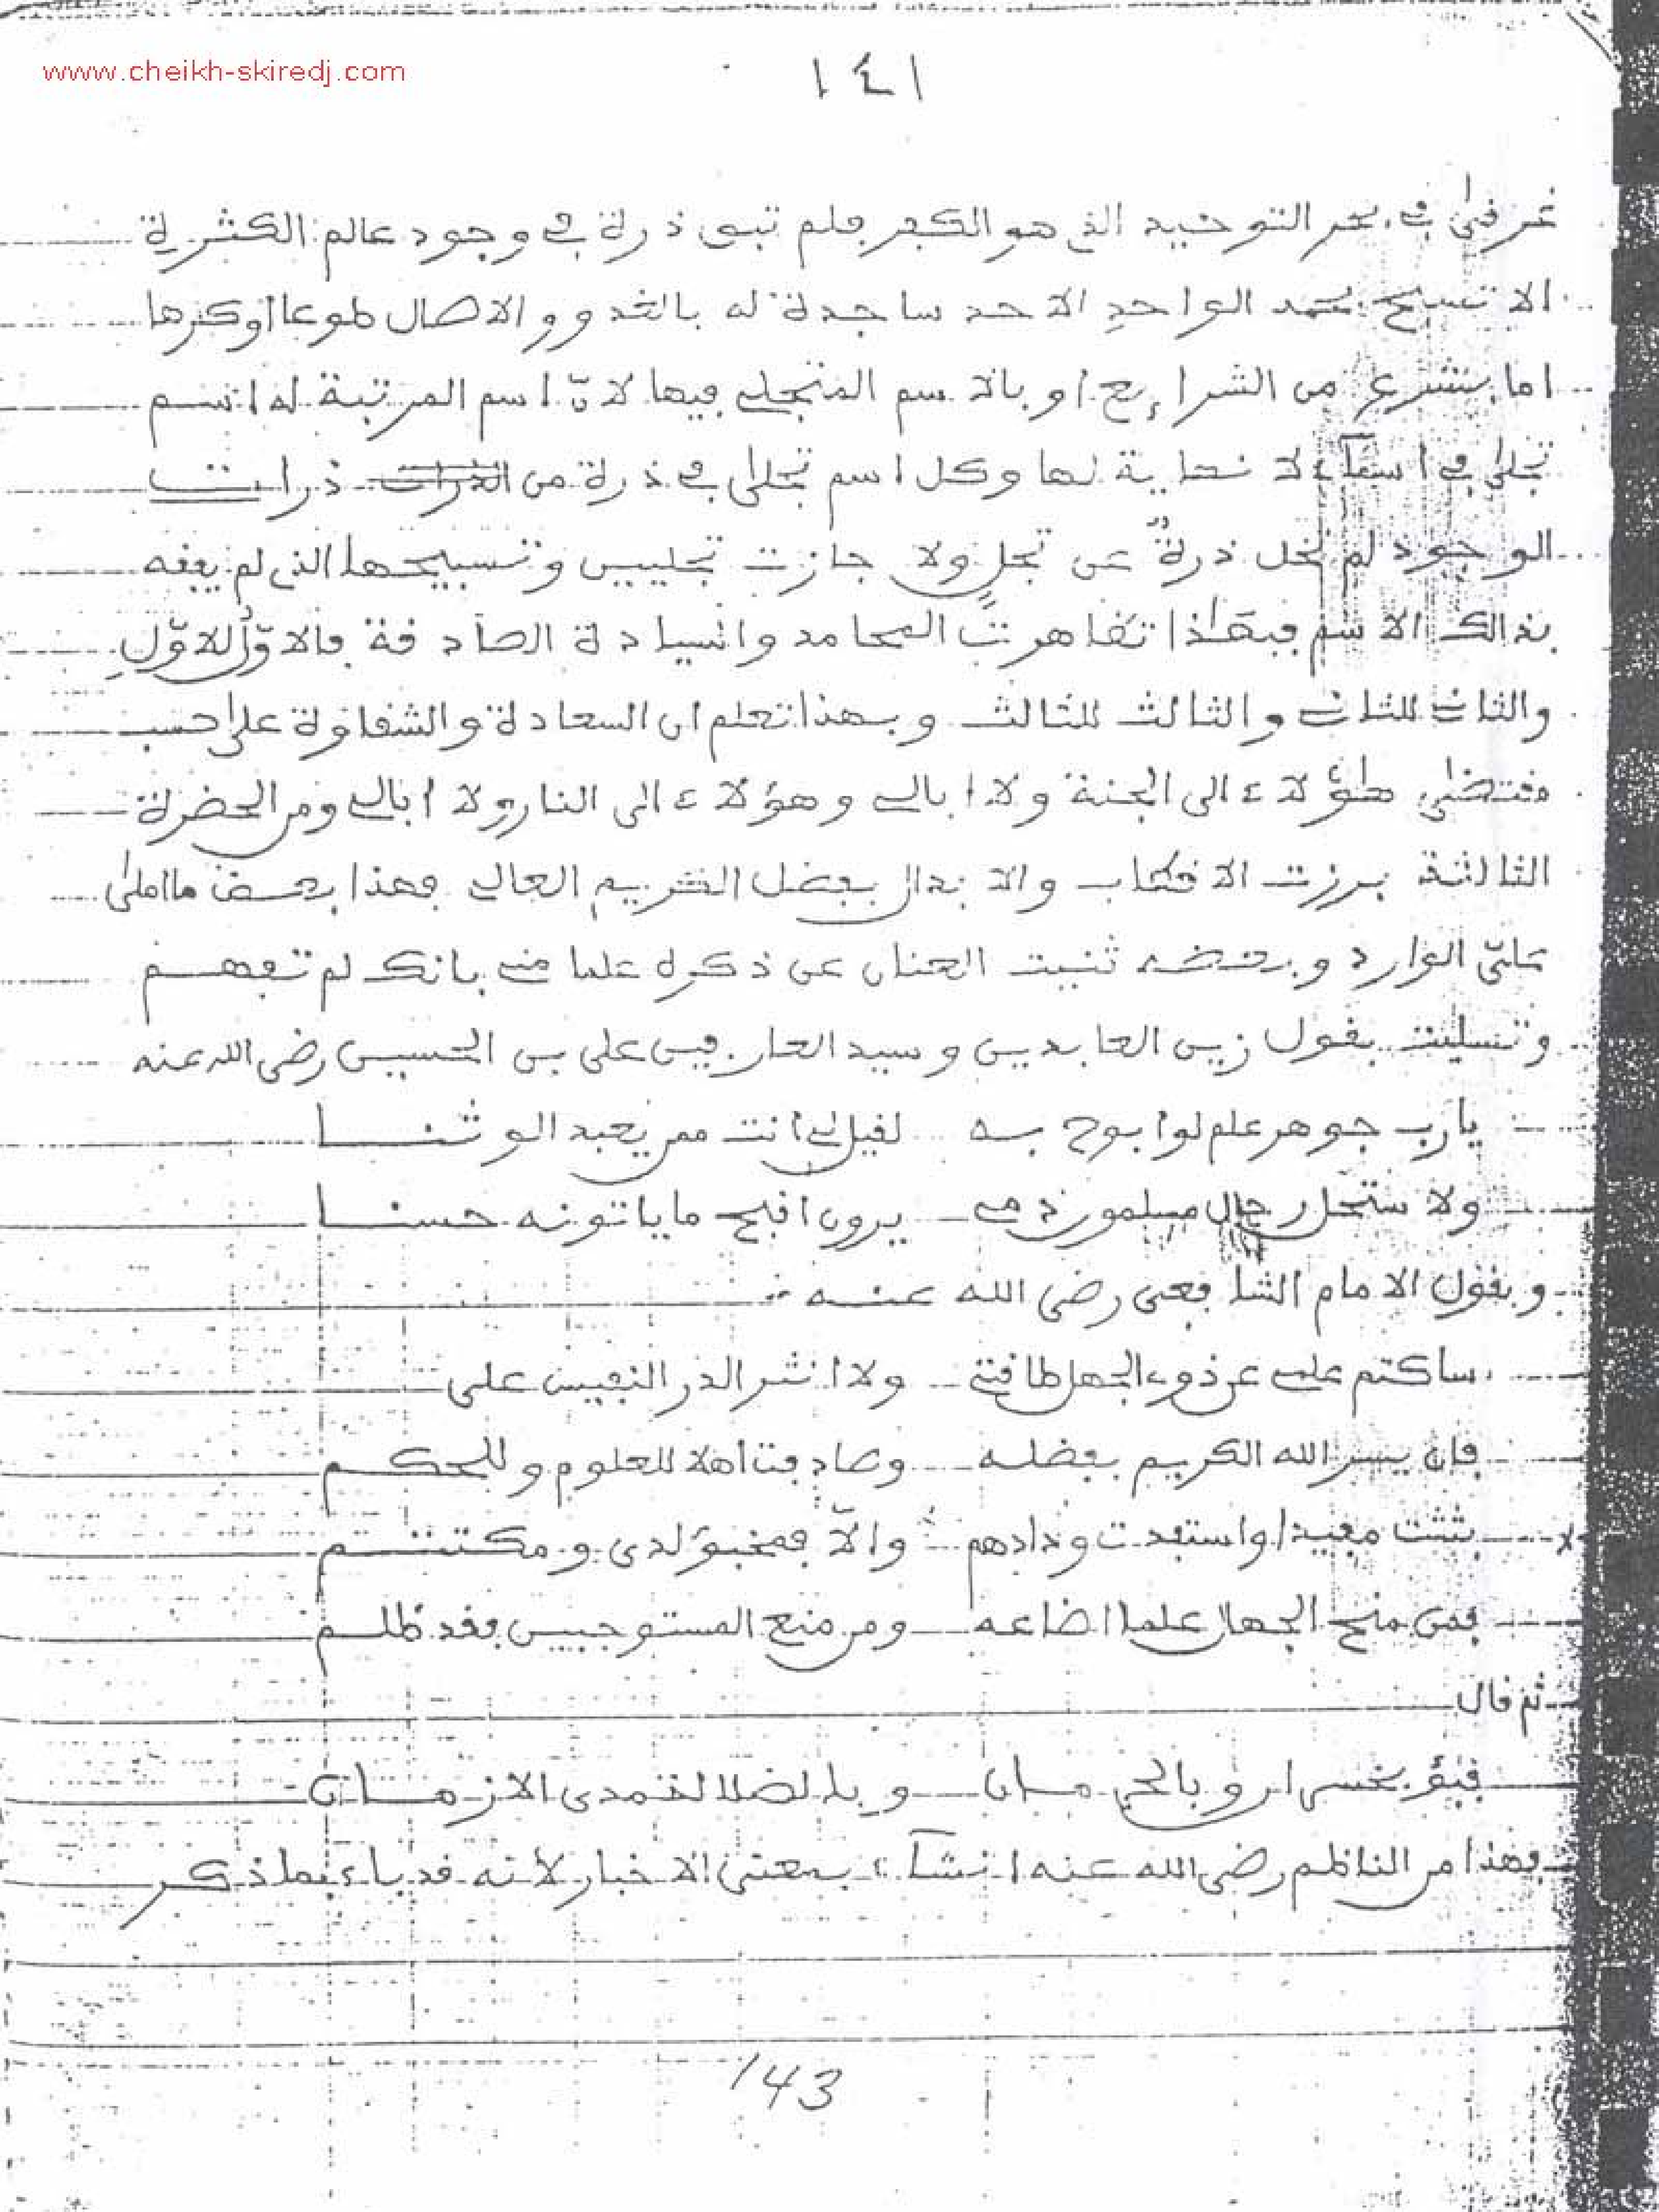 www.cheikh-skiredj.com
١٤١
غرقى في بحر التوحيد الذي هو الكفر فلم تبق ذرة في وجود عالم الكثرة
الا تسبح بحمد الواحد الاحد ساجدة له بالغدو والاصال طوعا اوكرها
اما بشرع من الشرايع او بالاسم المتجلي فيها لانّ اسم المرتبة له اسم
تجلى في اسمآء لا نهاية لها وكل اسم تجلى في ذرة من ذرات
الوجود لم تخل ذرةٌ عن تجلٍ ولا حازت تجليين وتسبيحها الذي لم يفقه
بذالك الاسم فبهذا تظاهرت المحامد والسيادة الصادقة فالاوّل للاوّلِ
والثاني للثاني والثالث للثالث وبهذا تعلم ان السعادة والشقاوة على حسب
مقتضى هؤلاء الى الجنة ولا ابالي وهؤلاء الى النار ولا ابالي ومن الحضرة
الثالثة برزت الاقطاب والابدال بفضل الكريم العالي فهذا بعض ما املى
علىّ الوارد وبعضه ثنيت العنان عن ذكره علما مني بانك لم تفهم
وتسليت بقول زين العابدين وسيد العارفين على بن الحسين رضى الله عنه
يارب جوهر علم لو ابوح به لقيل لي انت ممن يعبد الوثنا
ولاستحل رجال مسلمون دمي يرون اقبح ما ياتونه حسنا
وبقول الامام الشافعى رضى الله عنه
ساكتم علمي عن ذوي الجهل طاقتي ولا انثر الدر النفيس على
فان يسر الله الكريم بفضله وصادفت اهلا للعلوم وللحكم
بثثت مفيدا واستفدت ودادهم والاّ فمخبؤ لدى ومكتتم
فمن منح الجهال علما اضاعه ومن منع المستوجبين فقد ظلم
ثم قال
فبؤ بخسران وبالحرمان وبالضلالة مدى الازمان
فهذا من الناظم رضى الله عنه انشآء بمعنى الاخبار لانه قد باء بما ذكر
143